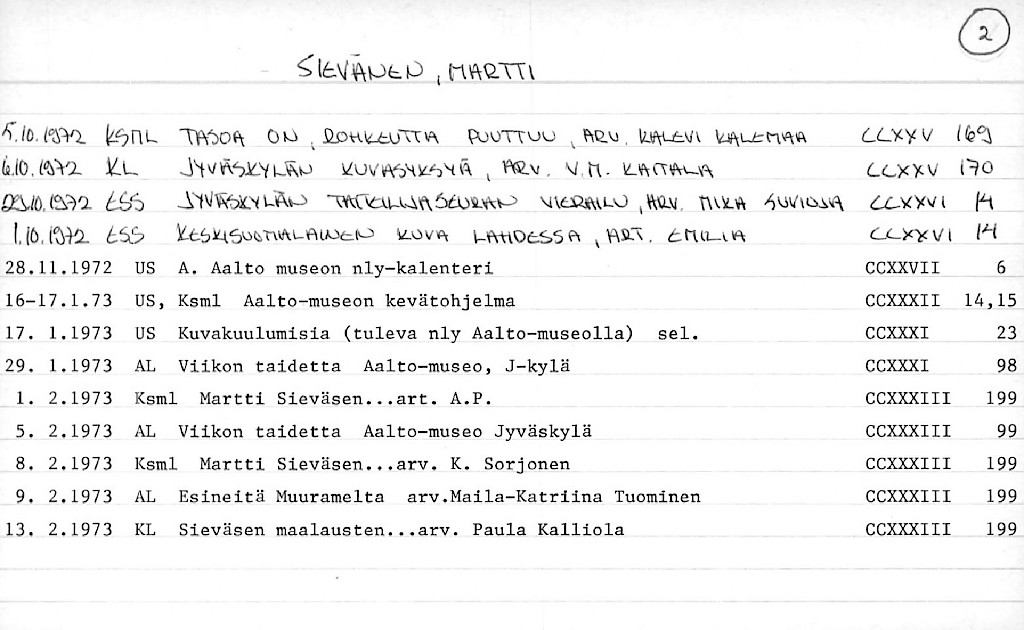 2
SIEVÄNEN, MARTTI
5.10.1972 KSML TASOA ON, ROHKEUTTA PUUTTUU, ARV. KALEVI KALEMAA CCXXV 169
6.10.1972 KL JYVÄSKYLÄN KUVASYKSYÄ, ARV. V.M. KAITALA CCXXV 170
29.10.1972 ESS JYVÄSKYLÄN TAITEILIJASEURAN VIERAILU, ARV. MIKA SUVIOJA CCXXVI 14
1.10.1972 ESS KESKISUOMALAINEN KUVA LAHDESSA, ART. EMILIA CCXXVI 14
28.11.1972 US A. Aalto museon nly-kalenteri CCXXVII 6
16-17.1.73 US, Ksml Aalto-museon kevätohjelma CCXXXII 14,15
17. 1.1973 US Kuvakuulumisia (tuleva nly Aalto-museolla) sel. CCXXXI 23
29. 1.1973 AL Viikon taidetta Aalto-museo, J-kylä CCXXXI 98
1. 2.1973 Ksml Martti Sieväsen...art. A.P. CCXXXIII 199
5. 2.1973 AL Viikon taidetta Aalto-museo Jyväskylä CCXXXIII 99
8. 2.1973 Ksml Martti Sieväsen...arv. K. Sorjonen CCXXXIII 199
9. 2.1973 AL Esineitä Muuramelta arv.Maila-Katriina Tuominen CCXXXIII 199
13. 2.1973 KL Sieväsen maalausten...arv. Paula Kalliola CCXXXIII 199